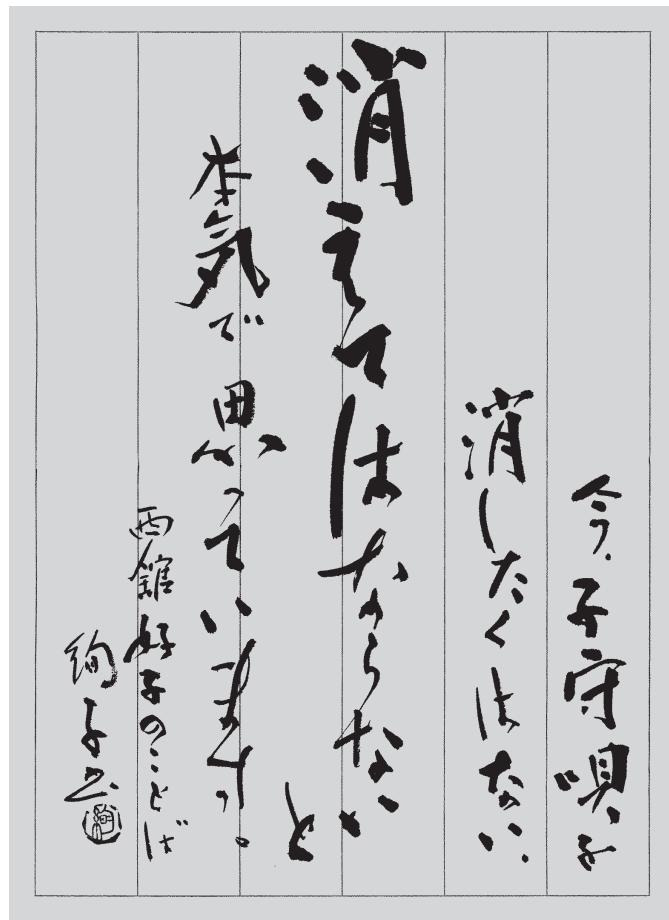 今、子守唄を
消したくはない、
消えてはならないと
本気で思っています。
西舘好子のことば
絢子書